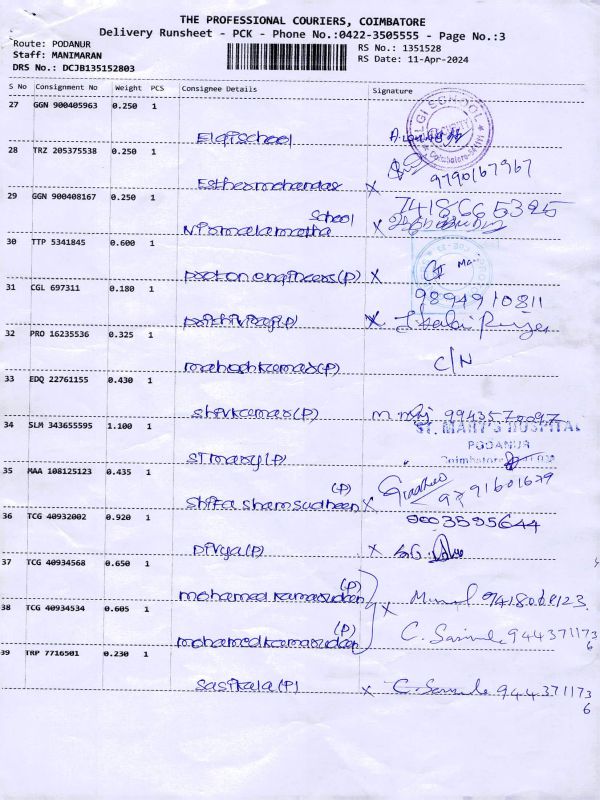 THE PROFESSIONAL COURIERS, COIMBATORE
Delivery Runsheet - PCK - Phone No.:0422-3505555 - Page No.:3
Route: PODANUR
Staff: MANIMARAN
DRS No.: DCJB135152803
RS No.: 1351528
RS Date: 11-Apr-2024
S No Consignment No Weight PCS Consignee Details Signature
27 GGN 900405963 0.250 1
Elgi school
ELGI SCHOOL
28 TRZ 205375538 0.250 1
Esthermohandas X 9790167967
29 GGN 900408167 0.250 1
7418665395
School
Nirmalamatha X
30 TTP 5341845 0.600 1
proton engineers(P) X
31 CGL 697311 0.180 1
9894910811
prithiviraj(P) X
32 PRO 16235536 0.325 1
maheshkumar(P) C/N
33 EDQ 22761155 0.430 1
Shivkumar(P) 9943570097
34 SLM 343655595 1.100 1
ST. MARY'S HOSPITAL
PODANUR
ST mary(P) Coimbatore
35 MAA 108125123 0.435 1
(P)
Shifa shamsudheen X 9791601679
36 TCG 40932002 0.920 1
9003595644
Divya(P) X
37 TCG 40934568 0.650 1
(P)
mohamed kamarudeen X
38 TCG 40934534 0.605 1
(P)
mohamed kamarudeen 9443711736
39 TRP 7716501 0.230 1
Sasikala(P) X 9443711736